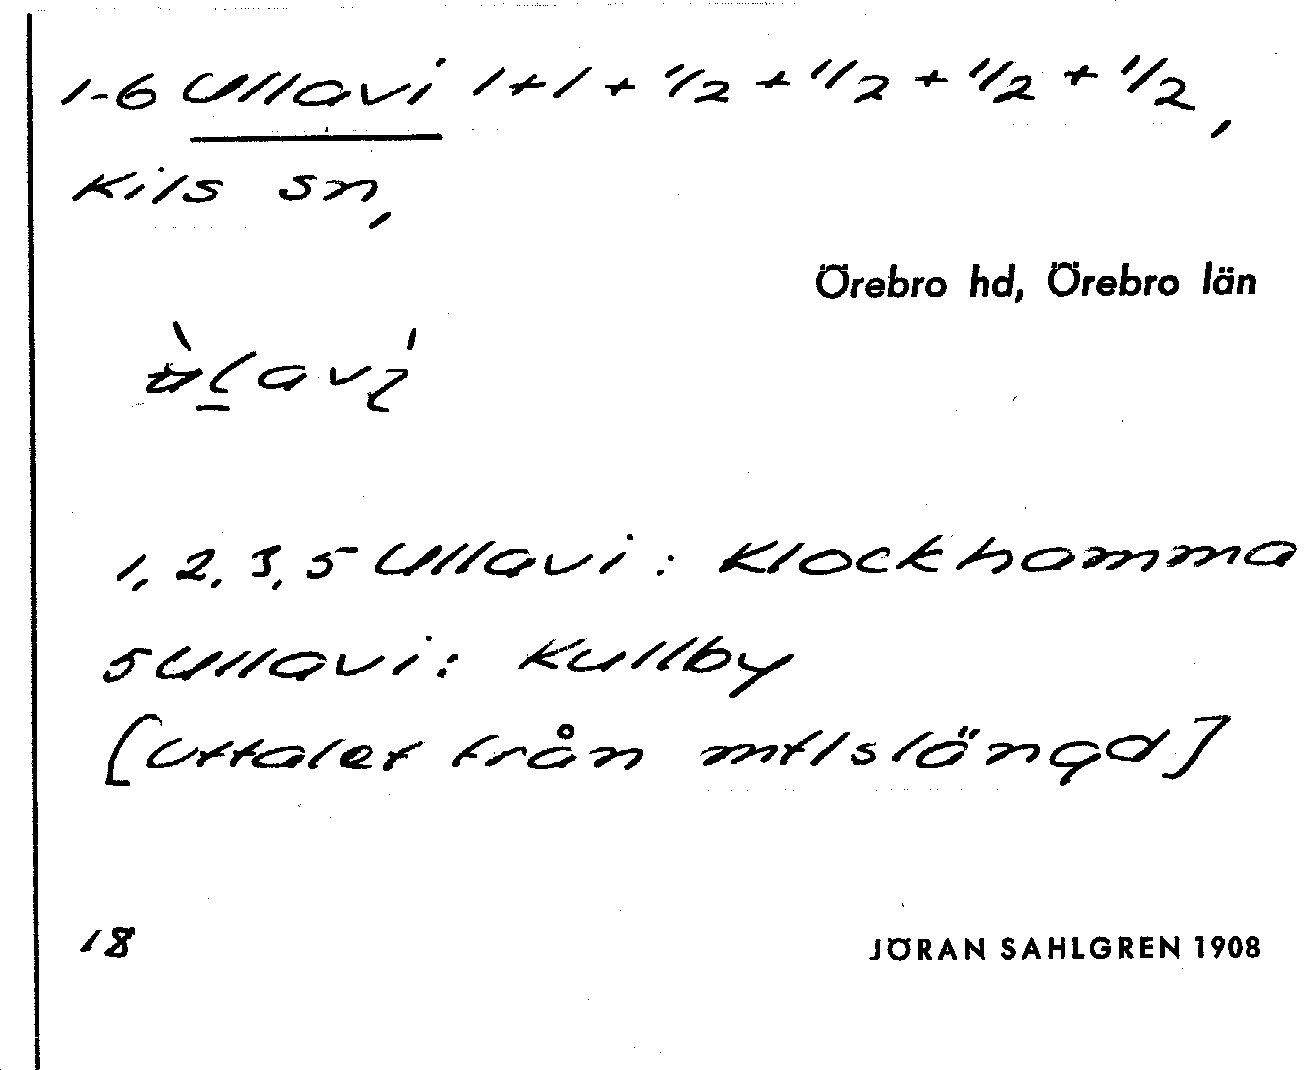 1-6 Ullavi 1+1+½+½+½+½,
Kils sn,
Örebro hd, Örebro län
1, 2, 3, 5 Ullavi: Klockhamma
5 Ullavi: Kullby
[Uttalet från mtlslängd]
18
JÖRAN SAHLGREN 1908